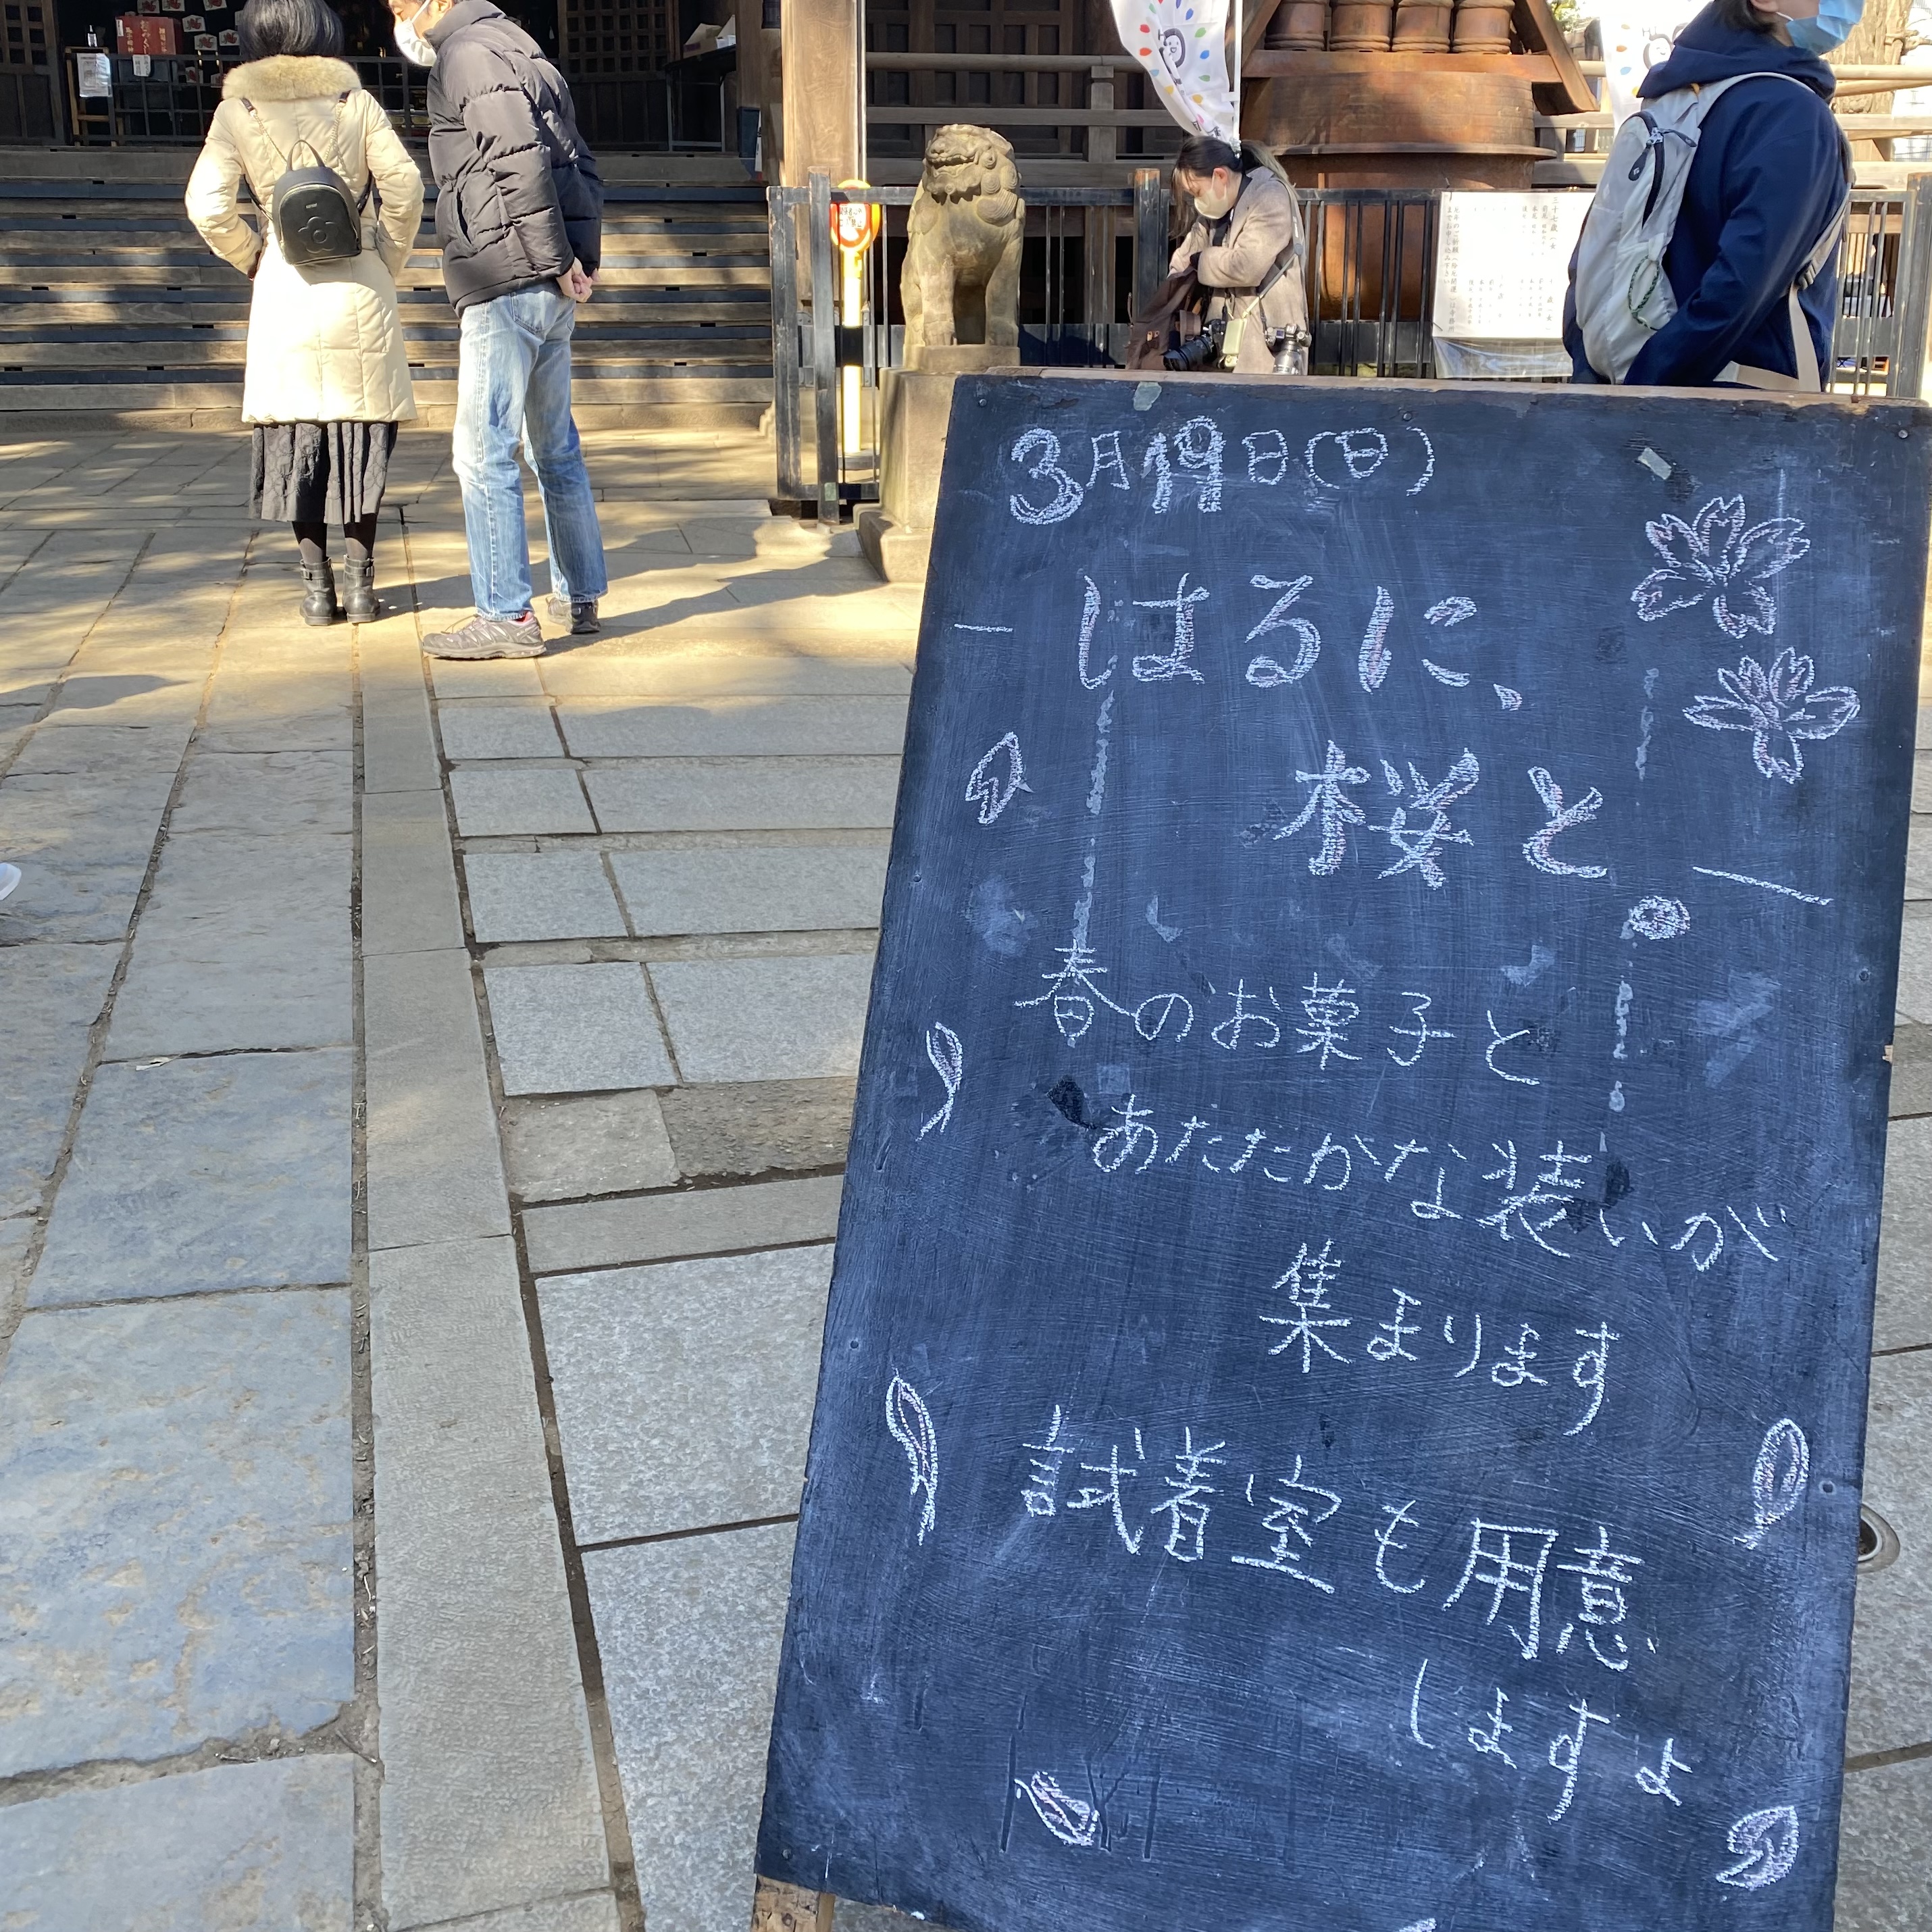 3月19日(日)
はるに、
桜と。
春のお菓子と
あたたかな装いが
集まります
試着室も用意
しますよ